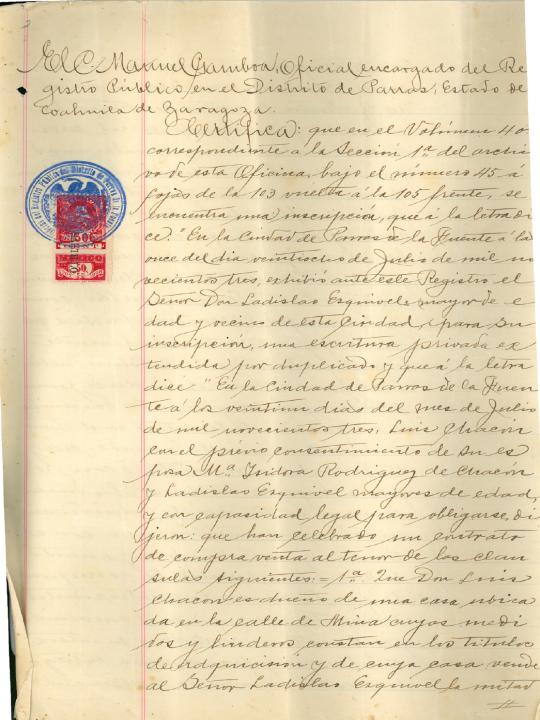 El C. Manuel Gamboa, Oficial encargado del Re
gistro Público, en el Distrito de Parras, Estado de
Coahuila de Zaragoza.
Certifica: que en el Volúmen 40
correspondiente á la Sección 1ª del archi
vo de esta Oficina, bajo el número 45 á
fojas de la 103 vuelta á la 105 frente, se
encuentra una inscripción, que á la letra di
ce: "En la Ciudad de Parras de la Fuente á la
once del día veintiocho de Julio de mil no
vecientos tres, exhibió ante este Registro el
Señor Don Ladislao Esquivel, mayor de e
dad y vecino de esta Ciudad, para su
inscripción, una escritura privada ex
tendida por duplicado y que á la letra
dice "En la Ciudad de Parras de la Fuen
te á los veintiun dias del mes de Julio
de mil novecientos tres, Luis Chacón
con el prévio consentimiento de su es
posa Mª Isidora Rodriguez de Chacón
y Ladislao Esquivel mayores de edad,
y con capasidad legal para obligarse, di
jeron: que han celebrado un contrato
de compra venta al tenor de las clau
sulas siguientes: = 1ª Que Don Luis
Chacon es dueño de una casa ubica
da en la calle de Mina cuyos medi
das y linderos constan en los titulos
de adquicición y de cuya casa vende
al Señor Ladislao Esquivel la mitad
MEXICO